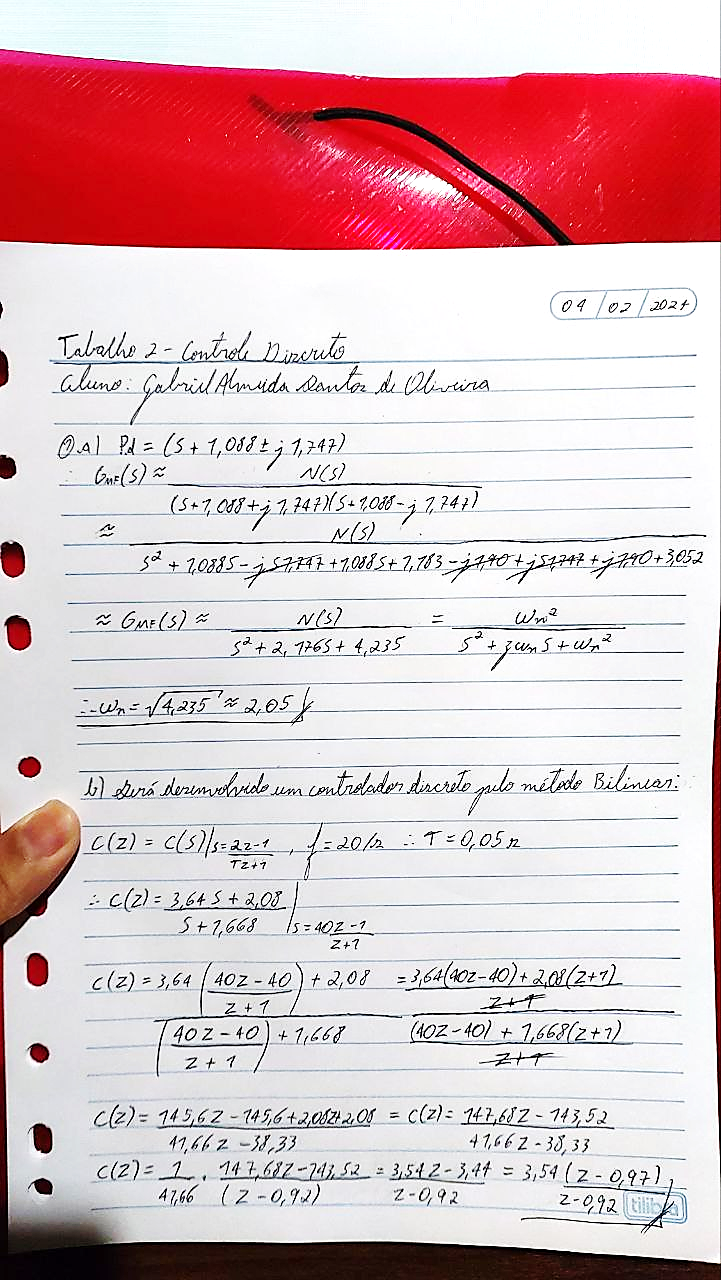 04 / 02 / 2021
Tabalho 2 - Controle Discreto
Aluno: Gabriel Almeida Santos de Oliveira
1) a) Pd = (s + 1,088 ± j 1,747)
∴ GMF(s) ≈ N(s)
(s+1,088+j 1,747)(s+1,088-j 1,747)
≈ N(s)
s² + 1,088s - js1,747 + 1,088s + 1,183 - j1,90 + js1,747 + j1,90 + 3,052
≈ GMF(s) ≈ N(s) = ωn²
s² + 2,176s + 4,235 s² + 3ωn s + ωn²
∴ ωn = √4,235 ≈ 2,05
b) Será desenvolvido um controlador discreto pelo método Bilinear:
C(z) = C(s)|s=2z-1 , f = 20/s ∴ T = 0,05s
Tz+1
∴ C(z) = 3,64s + 2,08
s + 1,668 |s=40z-1
z+1
C(z) = 3,64 (40z - 40) + 2,08 = 3,64(40z-40) + 2,08(z+1)
z + 1 z+1
(40z - 40) + 1,668 (40z-40) + 1,668(z+1)
z + 1 z+1
C(z) = 145,6z - 145,6 + 2,08z + 2,08 = C(z) = 147,68z - 143,52
41,66z - 38,33 41,66z - 38,33
C(z) = 1 . 147,68z - 143,52 = 3,54z - 3,44 = 3,54 (z - 0,97)
41,66 (z - 0,92) z - 0,92 z - 0,92
tilibra